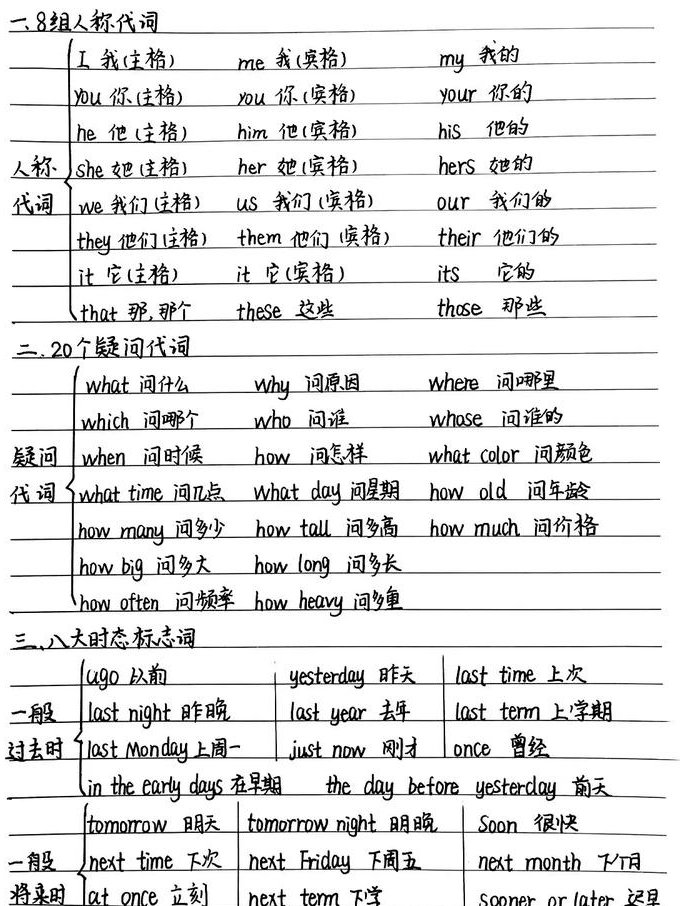 一、8组人称代词
I 我(主格) me 我(宾格) my 我的
you 你(主格) you 你(宾格) your 你的
he 他(主格) him 他(宾格) his 他的
人称 she 她(主格) her 她(宾格) hers 她的
代词 we 我们(主格) us 我们(宾格) our 我们的
they 他们(主格) them 他们(宾格) their 他们的
it 它(主格) it 它(宾格) its 它的
that 那,那个 these 这些 those 那些
二、20个疑问代词
what 问什么 why 问原因 where 问哪里
which 问哪个 who 问谁 whose 问谁的
疑问 when 问时候 how 问怎样 what color 问颜色
代词 what time 问几点 what day 问星期 how old 问年龄
how many 问多少 how tall 问多高 how much 问价格
how big 问多大 how long 问多长
how often 问频率 how heavy 问多重
三、八大时态标志词
ago 以前 yesterday 昨天 last time 上次
一般 last night 昨晚 last year 去年 last term 上学期
过去时 last Monday 上周一 just now 刚才 once 曾经
in the early days 在早期 the day before yesterday 前天
tomorrow 明天 tomorrow night 明晚 soon 很快
一般 next time 下次 next Friday 下周五 next month 下个月
将来时 at once 立刻 next term 下学 sooner or later 迟早